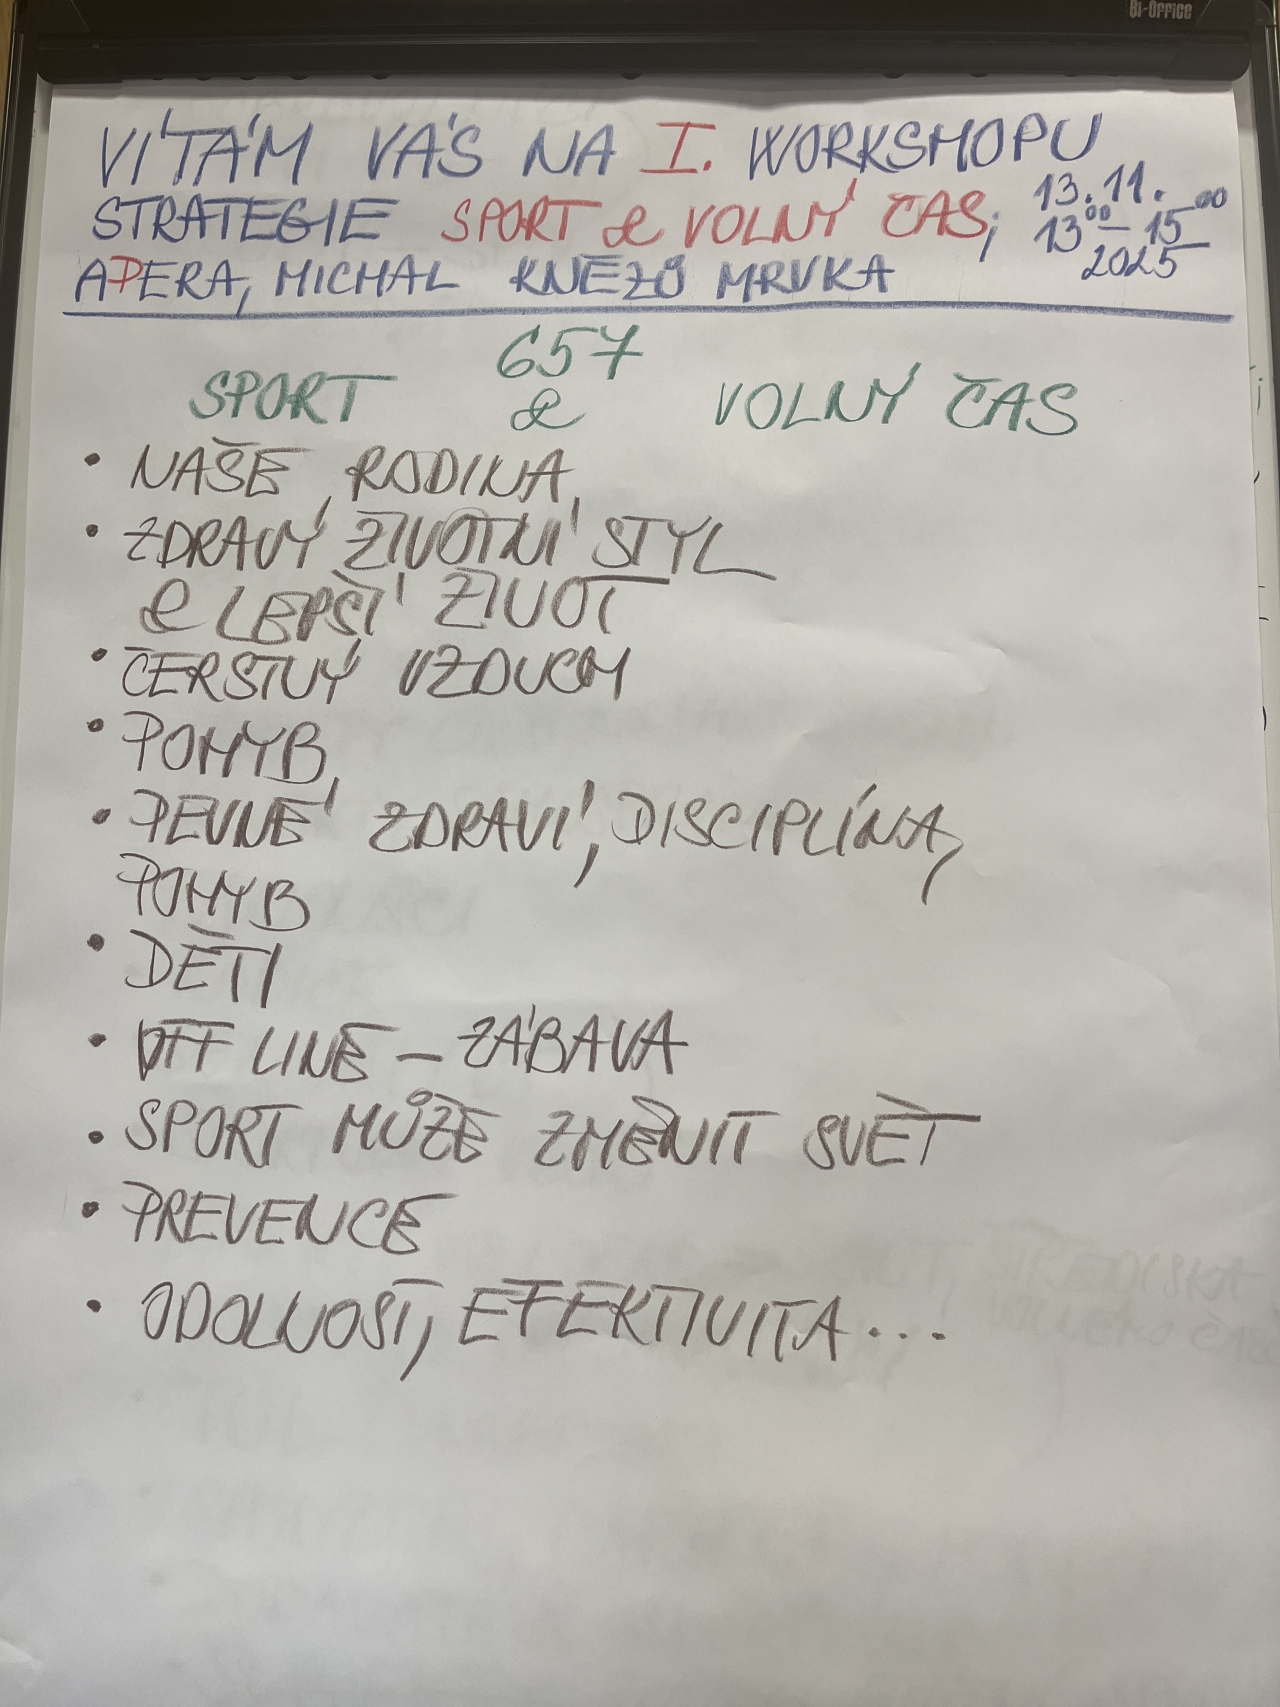 Bi-Office
VÍTÁM VÁS NA I. WORKSHOPU
STRATEGIE SPORT & VOLNÝ ČAS; 13.11.
13⁰⁰ – 15⁰⁰
APERA, MICHAL KNĚZŮ MRVKA 2025
657
SPORT & VOLNÝ ČAS
• NAŠE RODINA
• ZDRAVÝ ŽIVOTNÍ STYL
& LEPŠÍ ŽIVOT
• ČERSTVÝ VZDUCH
• POHYB
• PEVNÉ ZDRAVÍ, DISCIPLÍNA,
POHYB
• DĚTI
• OFF LINE – ZÁBAVA
• SPORT MŮŽE ZMĚNIT SVĚT
• PREVENCE
• ODOLNOST, EFEKTIVITA...